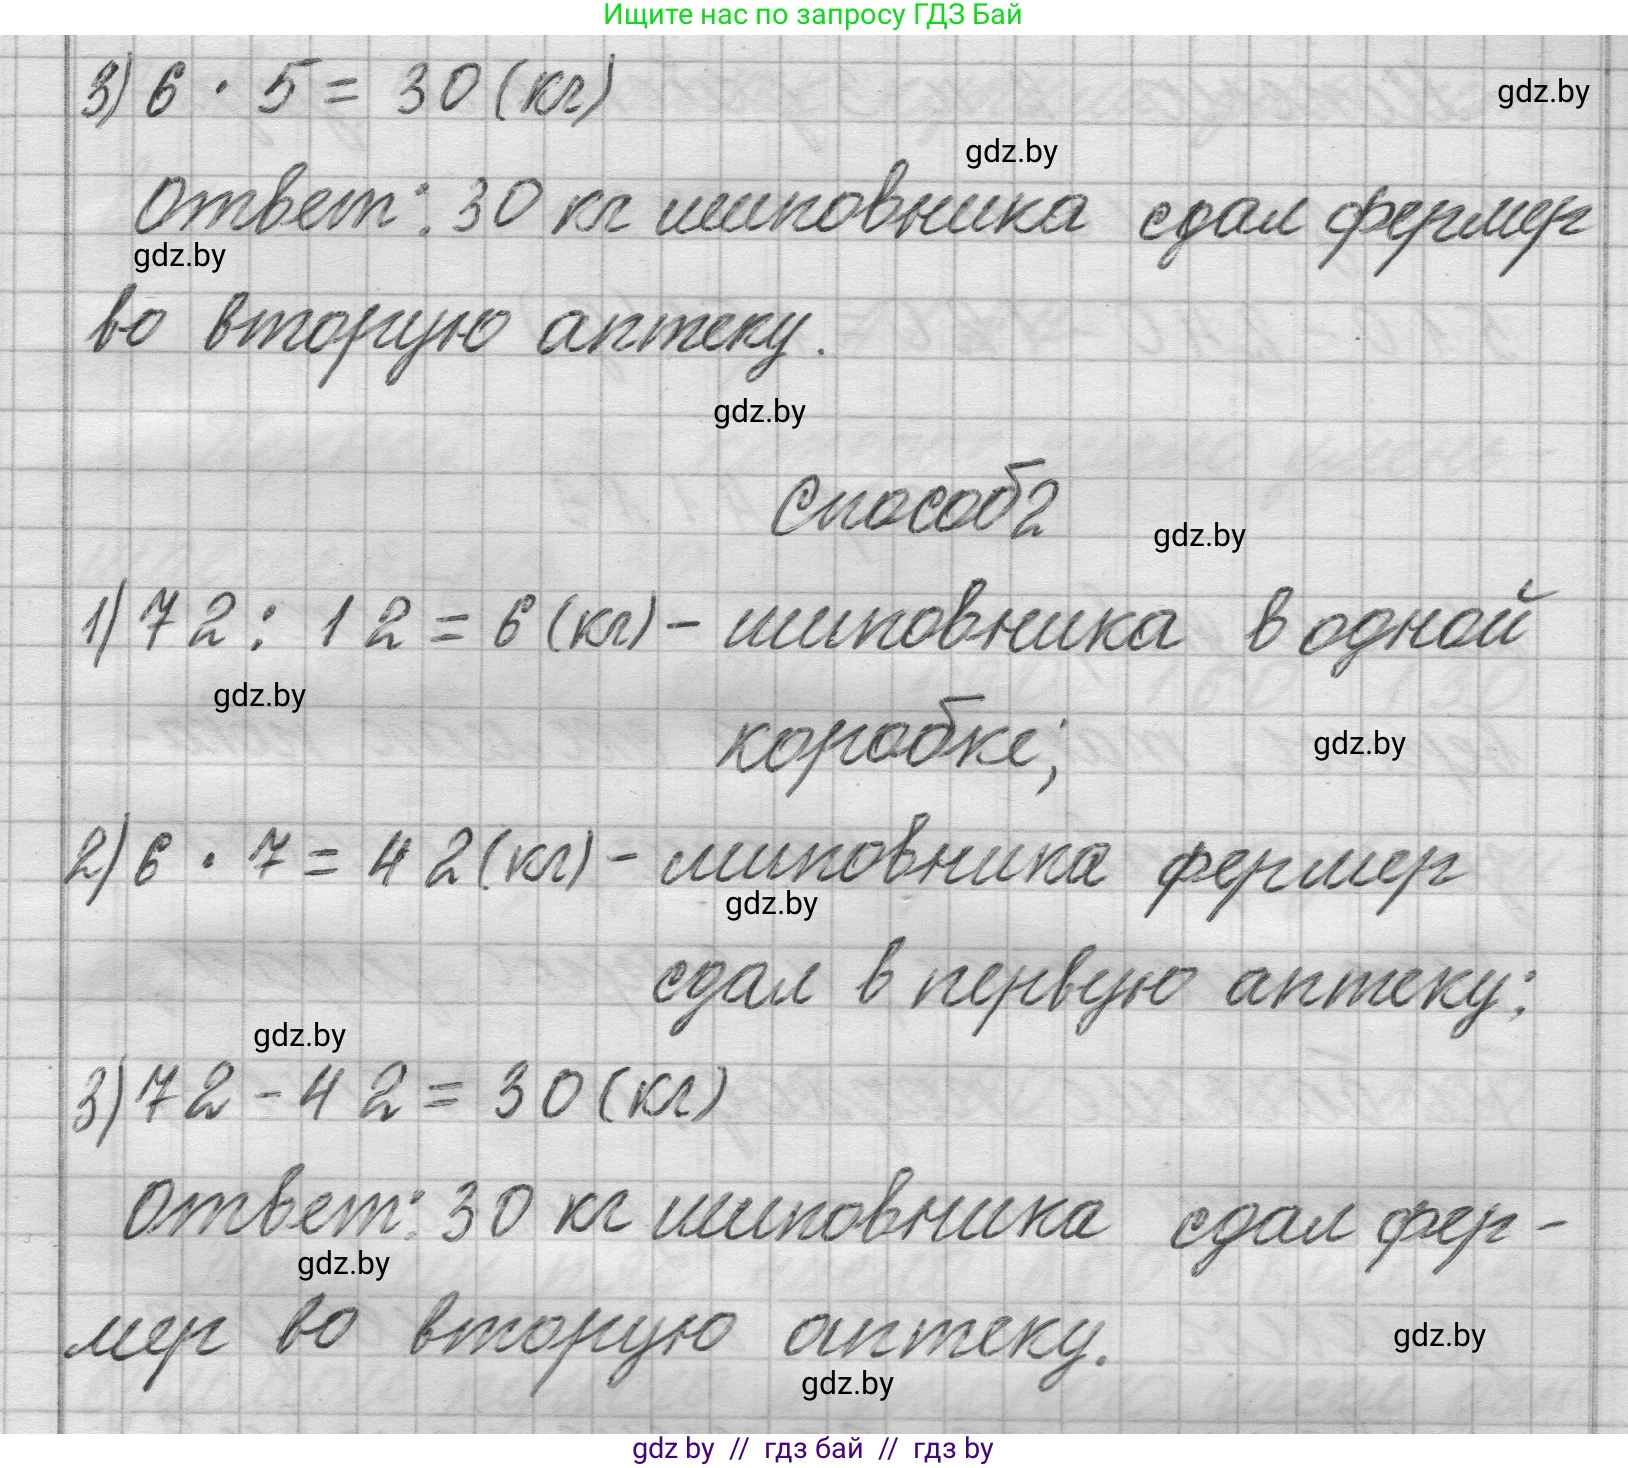 Ищите нас по запросу ГДЗ Бай
3) 6 · 5 = 30 (кг)
gdz.by
gdz.by
Ответ: 30 кг шиповника сдал фермер
gdz.by
во вторую аптеку.
gdz.by
Способ 2
gdz.by
1) 72 : 12 = 6 (кг) - шиповника в одной
gdz.by
коробке;
gdz.by
2) 6 · 7 = 42 (кг) - шиповника фермер
gdz.by
сдал в первую аптеку;
gdz.by
3) 72 - 42 = 30 (кг)
Ответ: 30 кг шиповника сдал фер-
gdz.by
мер во вторую аптеку.
gdz.by
gdz.by
gdz by // гдз бай // гдз by